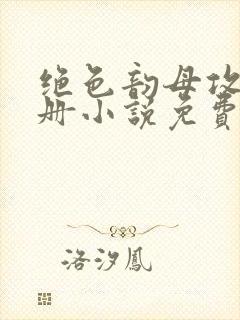 绝色韵母攻
册小说免费
洛汐凤